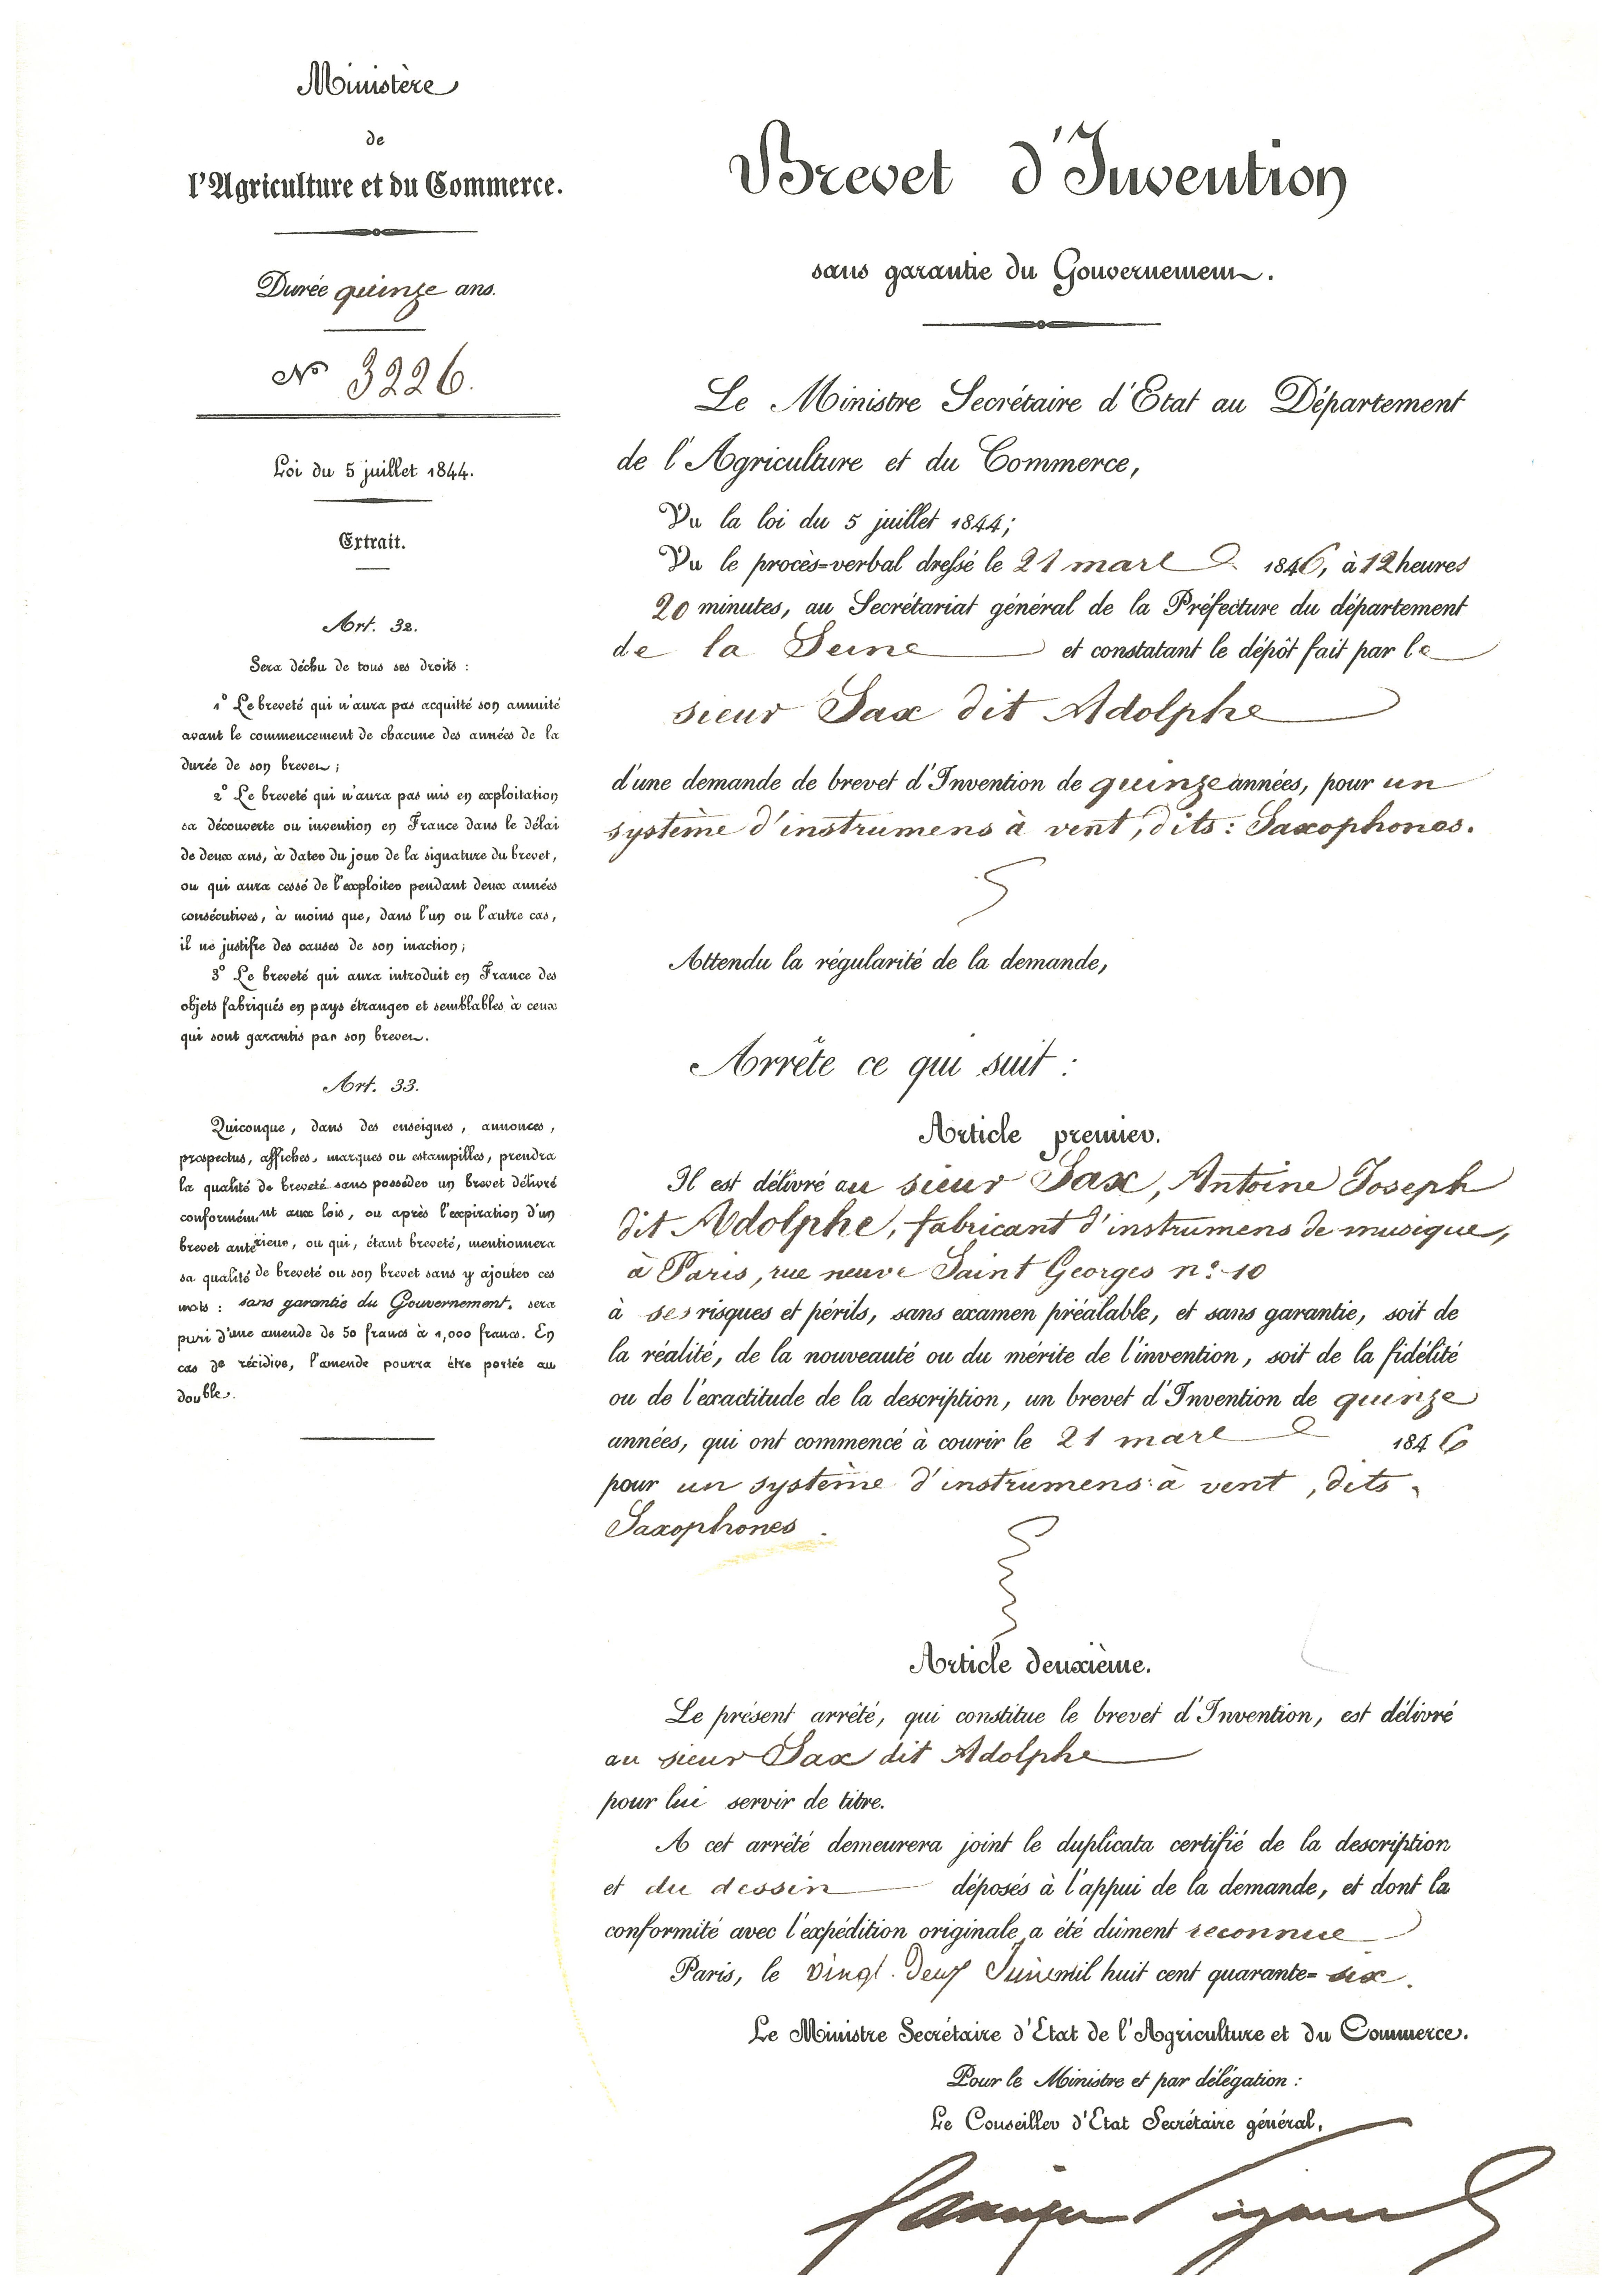 Ministère
de
l'Agriculture et du Commerce.
Durée quinze ans.
N° 3226.
Loi du 5 juillet 1844.
Extrait.
Art. 32.
Sera déchu de tous ses droits :
1° Le breveté qui n'aura pas acquitté son annuité
avant le commencement de chacune des années de la
durée de son brevet ;
2° Le breveté qui n'aura pas mis en exploitation
sa découverte ou invention en France dans le délai
de deux ans, à dater du jour de la signature du brevet,
ou qui aura cessé de l'exploiter pendant deux années
consécutives, à moins que, dans l'un ou l'autre cas,
il ne justifie des causes de son inaction ;
3° Le breveté qui aura introduit en France des
objets fabriqués en pays étranger et semblables à ceux
qui sont garantis par son brevet.
Art. 33.
Quiconque, dans des enseignes, annonces,
prospectus, affiches, marques ou estampilles, prendra
la qualité de breveté sans posséder un brevet délivré
conformément aux lois, ou après l'expiration d'un
brevet antérieur, ou qui, étant breveté, mentionnera
sa qualité de breveté ou son brevet sans y ajouter ces
mots : sans garantie du Gouvernement, sera
puni d'une amende de 50 francs à 1,000 francs. En
cas de récidive, l'amende pourra être portée au
double.
Brevet d'Invention
sans garantie du Gouvernement.
Le Ministre Secrétaire d'Etat au Département
de l'Agriculture et du Commerce,
Vu la loi du 5 juillet 1844;
Vu le procès=verbal dressé le 21 mars 1846, à 12 heures
20 minutes, au Secrétariat général de la Préfecture du département
de la Seine et constatant le dépôt fait par le
sieur Sax dit Adolphe
d'une demande de brevet d'Invention de quinze années, pour un
système d'instrumens à vent, dits : Saxophones.
Attendu la régularité de la demande,
Arrête ce qui suit :
Article premier.
Il est délivré au sieur Sax, Antoine Joseph
dit Adolphe, fabricant d'instrumens de musique,
à Paris, rue neuve Saint Georges n° 10
à ses risques et périls, sans examen préalable, et sans garantie, soit de
la réalité, de la nouveauté ou du mérite de l'invention, soit de la fidélité
ou de l'exactitude de la description, un brevet d'Invention de quinze
années, qui ont commencé à courir le 21 mars 1846
pour un système d'instrumens à vent, dits
Saxophones.
Article deuxième.
Le présent arrêté, qui constitue le brevet d'Invention, est délivré
au sieur Sax dit Adolphe
pour lui servir de titre.
A cet arrêté demeurera joint le duplicata certifié de la description
et du dessin déposés à l'appui de la demande, et dont la
conformité avec l'expédition originale a été dûment reconnue
Paris, le vingt-deux Juin mil huit cent quarante=six.
Le Ministre Secrétaire d'Etat de l'Agriculture et du Commerce.
Pour le Ministre et par délégation :
Le Conseiller d'Etat Secrétaire général,